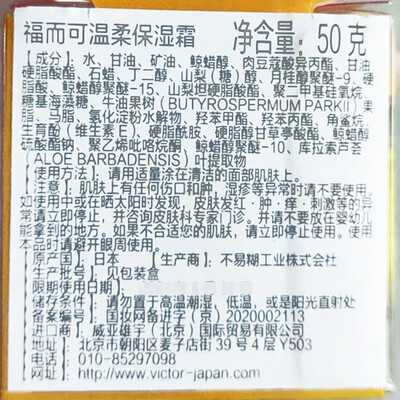 福而可温柔保湿霜 净含量: 50克
【成分】水、甘油、矿油、鲸蜡醇、肉豆蔻酸异丙酯、甘油
硬脂酸酯、石蜡、丁二醇、山梨（糖）醇、月桂醇聚醚-9、硬
脂酸、鲸蜡醇聚醚-15、山梨坦硬脂酸酯、聚二甲基硅氧烷、
糖基海藻糖、牛油果树（BUTYROSPERMUM PARKII）果
脂、马脂、氢化淀粉水解物、羟苯甲酯、羟苯丙酯、角鲨烷、
生育酚（维生素E）、硬脂酰胺、硬脂醇甘草亭酸酯、鲸蜡醇
硫酸酯钠、聚乙烯吡咯烷酮、鲸蜡醇聚醚-10、库拉索芦荟
（ALOE BARBADENSIS）叶提取物
【使用方法】: 请用适量涂在清洁的面部肌肤上。
【注意】: 肌肤上有任何伤口和肿，湿疹等异常时请不要使用。
如使用中或在晒太阳时发现，皮肤发红·肿·痒·刺激等的异
常请立即停止，并咨询皮肤科专家门诊。并请不要放在婴幼儿
能拿到的地方。如果不合适您的肌肤，立即停止使用。使用本
产品时请避开眼周使用。
原产国: 日本 【生产商】: 不易糊工业株式会社
生产批号: 见包装盒
限期使用日期:
储存条件: 请勿置于高温潮湿，低温，或是阳光直射处
备案编号: 国妆网备进字（京）2020002113
进口商: 威亚雄宇（北京）国际贸易有限公司
地址: 北京市朝阳区麦子店街39号4层Y503
电话: 010-85297098
网址: http://www.victor-japan.com